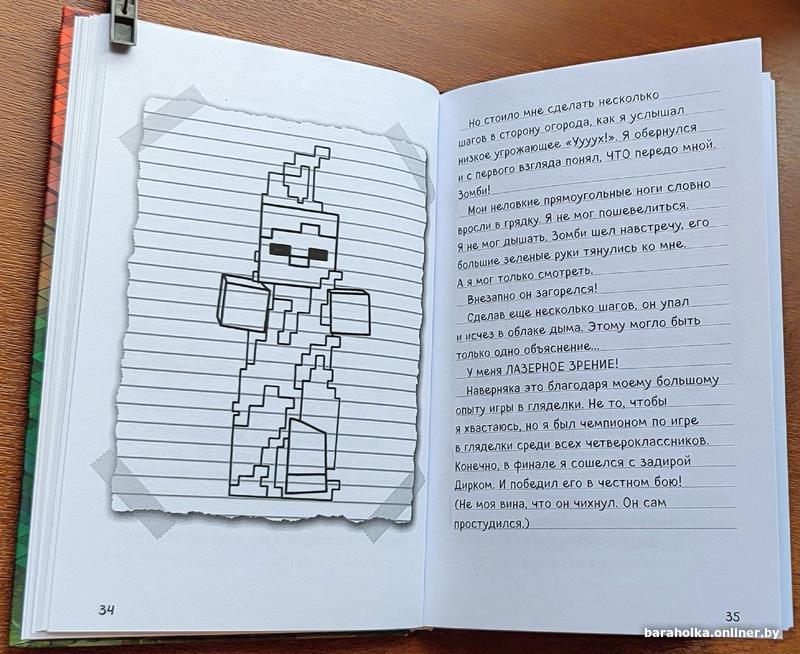 Но стоило мне сделать несколько
шагов в сторону огорода, как я услышал
низкое угрожающее «Уууух!». Я обернулся
и с первого взгляда понял, ЧТО передо мной.
Зомби!
Мои неловкие прямоугольные ноги словно
вросли в грядку. Я не мог пошевелиться.
Я не мог дышать. Зомби шел навстречу, его
большие зеленые руки тянулись ко мне.
А я мог только смотреть.
Внезапно он загорелся!
Сделав еще несколько шагов, он упал
и исчез в облаке дыма. Этому могло быть
только одно объяснение...
У меня ЛАЗЕРНОЕ ЗРЕНИЕ!
Наверняка это благодаря моему большому
опыту игры в гляделки. Не то, чтобы
я хвастаюсь, но я был чемпионом по игре
в гляделки среди всех четвероклассников.
Конечно, в финале я сошелся с задирой
Дирком. И победил его в честном бою!
(Не моя вина, что он чихнул. Он сам
простудился.)
34
35
baraholka.onliner.by